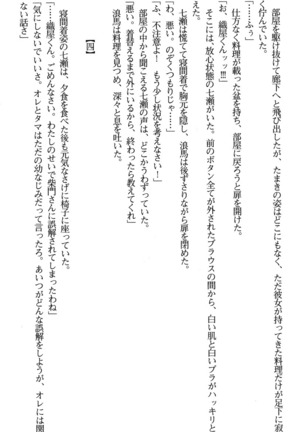 部屋を駆け抜けて廊下へと飛び出したが、たまきの姿はどこにもなく、ただ彼女が持ってきた料理だけが足下に寂し
く佇んでいた。
「……ふぅ」
仕方なく料理が載った盆を持ち、部屋に戻ろうと扉を開けた。
「お、織屋くんッ!!」
そこには、放心状態の七瀬がいた。前のボタン全てが外されたブラウスの間から、白い肌と白いブラがハッキリと
「わ、悪い。のぞくつもりじゃ……」
七瀬は慌てて寝間着で胸元を隠し、浪馬は後ずさりながら扉を閉めた。
「ふ、不注意よ！ もう少し状況を考えなさい！」
部屋の中から聞こえる七瀬の声は、どこかうわずっていた。
「悪い。着替えるまで外にいるから、終わったら教えてくれ」
浪馬は料理を見つめ、深々と息を吐いた。
【四】
寝間着姿の七瀬は、夕食を食べた後も元気なさげに椅子に座っていた。
「……織屋くん、ごめんなさい。わたしのせいで柴門さんに誤解されてしまったわね」
「気にしないでいいさ。オレとタマはただの幼なじみだって言ったろ。あいつがどんな誤解をしようが、オレには関
ない話さ」